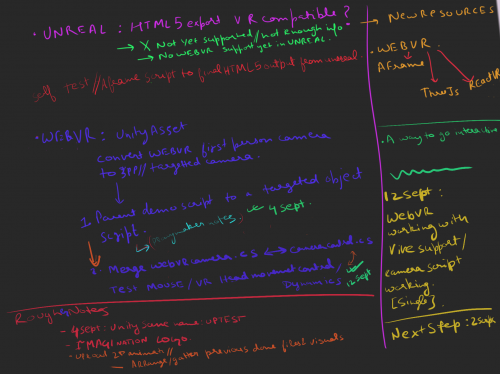 • UNREAL : HTML5 export VR compatible?
→ X Not yet supported / not enough info
→ No WEBVR Support yet in UNREAL.
self TEST // Aframe script to final HTML5 output from unreal.
• WEBVR : Unity Asset
Convert WEBVR first person camera
to 3PP // targeted camera.
1. Parent demo script to a targeted object
script.
← 4 sept.
2. Merge webvrcamera.cs ↔ cameracontrol.cs
TEST Mouse / VR Head movement control /
Dynamics
12 sept
Rough notes
- 4 sept : Unity scene name : UPTEST
- IMAGINATION LOGO
Arrange/gather previous done final visuals
→ New RESOURCES
• WEBVR :
AFrame
Three Js
ReactVR
• A way to go interactive
12 sept :
WebVR
working with
Vive support /
camera script
working.
[Single].
Next Step :